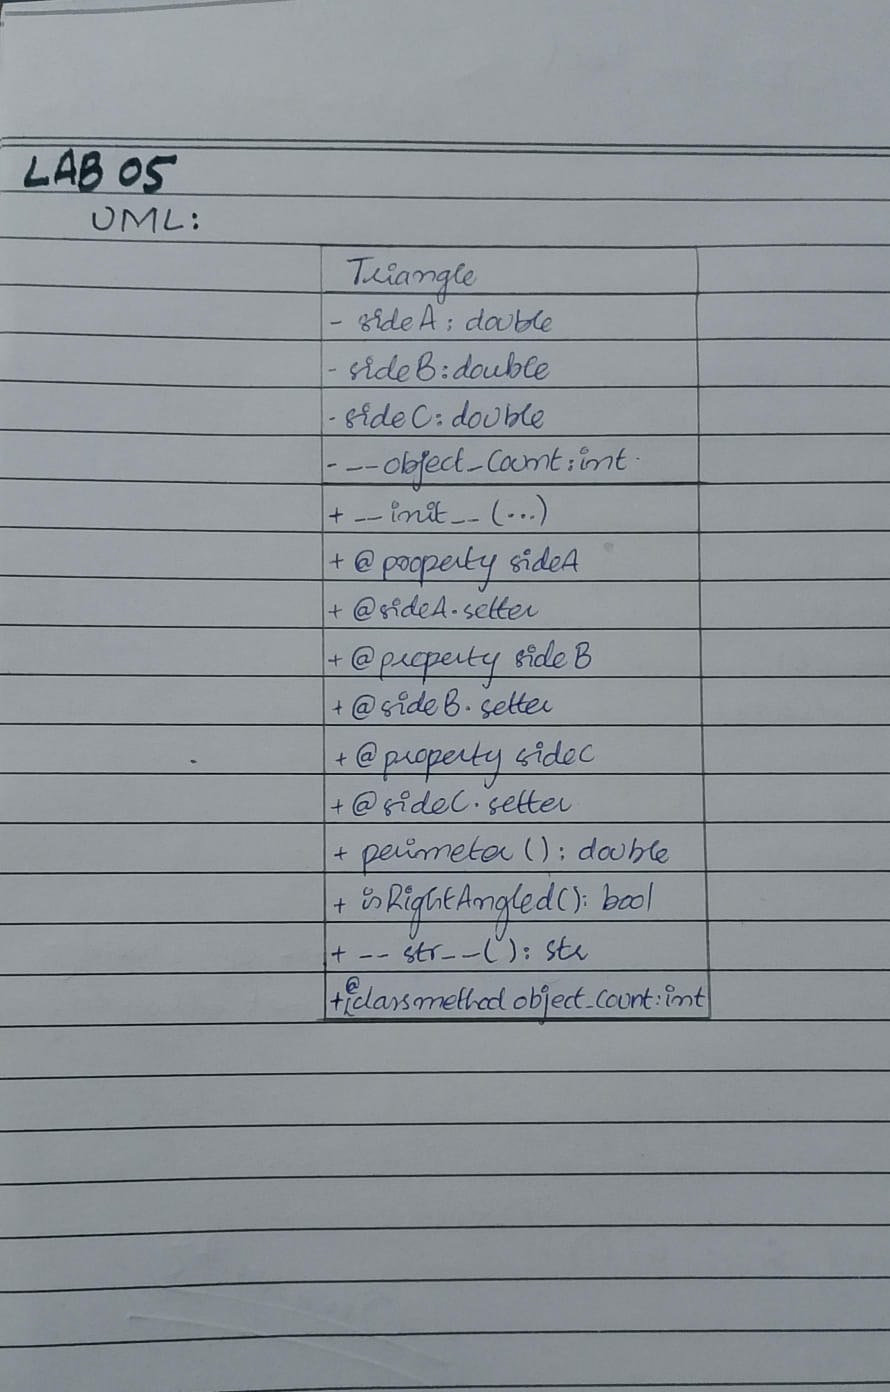 LAB 05
UML:
Triangle
- sideA: double
- sideB: double
- sideC: double
- __object_Count: int
+ __init__(...)
+ @pooperty sideA
+ @sideA.setter
+ @property sideB
+ @sideB.setter
+ @property sideC
+ @sideC.setter
+ perimeter(): double
+ isRightAngled(): bool
+ __str__(): str
+ @classmethod object_count: int